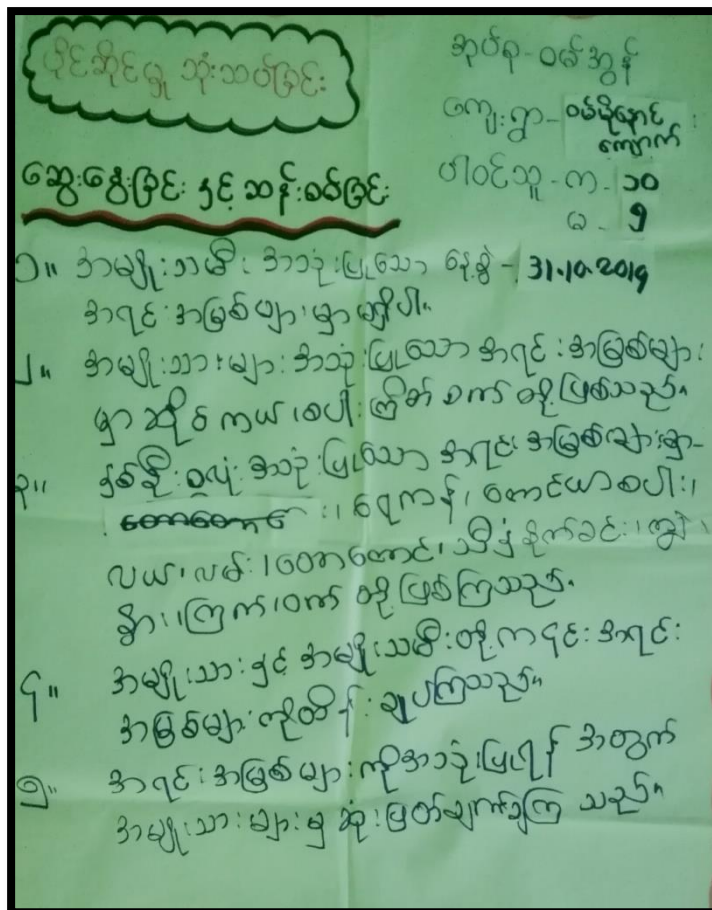 ပိုင်ဆိုင်မှု သုံးသပ်ခြင်း
အုပ်စု - ဝမ်အွန်
ကျေးရွာ - ဝမ်ပိုနောင်
ကျောက်
ဆွေးနွေးခြင်း နှင့် ဆန်းစစ်ခြင်း
ပါဝင်သူ - က - ၁၀
မ - ၅
၁။ အမျိုးသမီး အသုံးပြုသော နေ့စွဲ - 31.10.2019
အရင်းအမြစ်များမှာ မရှိပါ။
၂။ အမျိုးသားများ အသုံးပြုသော အရင်းအမြစ်များ
မှာ ဆိုင်ကယ်၊ စပါးကြိတ်စက် တို့ဖြစ်သည်။
၃။ နှစ်ဦးစလုံး အသုံးပြုသော အရင်းအမြစ်များမှာ -
၊ ရေကန်၊ တောင်ယာစပါး၊
လယ်၊ လမ်း၊ တောတောင်၊ သီးနှံစိုက်ခင်း၊ ကျွဲ၊
နွား၊ ကြက်၊ ဝက် တို့ဖြစ်ကြသည်။
၄။ အမျိုးသား နှင့် အမျိုးသမီးတို့က ၎င်း အရင်း
အမြစ်များကိုထိန်းချုပ်ကြသည်။
၅။ အရင်းအမြစ်များကိုအသုံးပြုရန် အတွက်
အမျိုးသားများမှ ဆုံးဖြတ်ချက်ချကြ သည်။